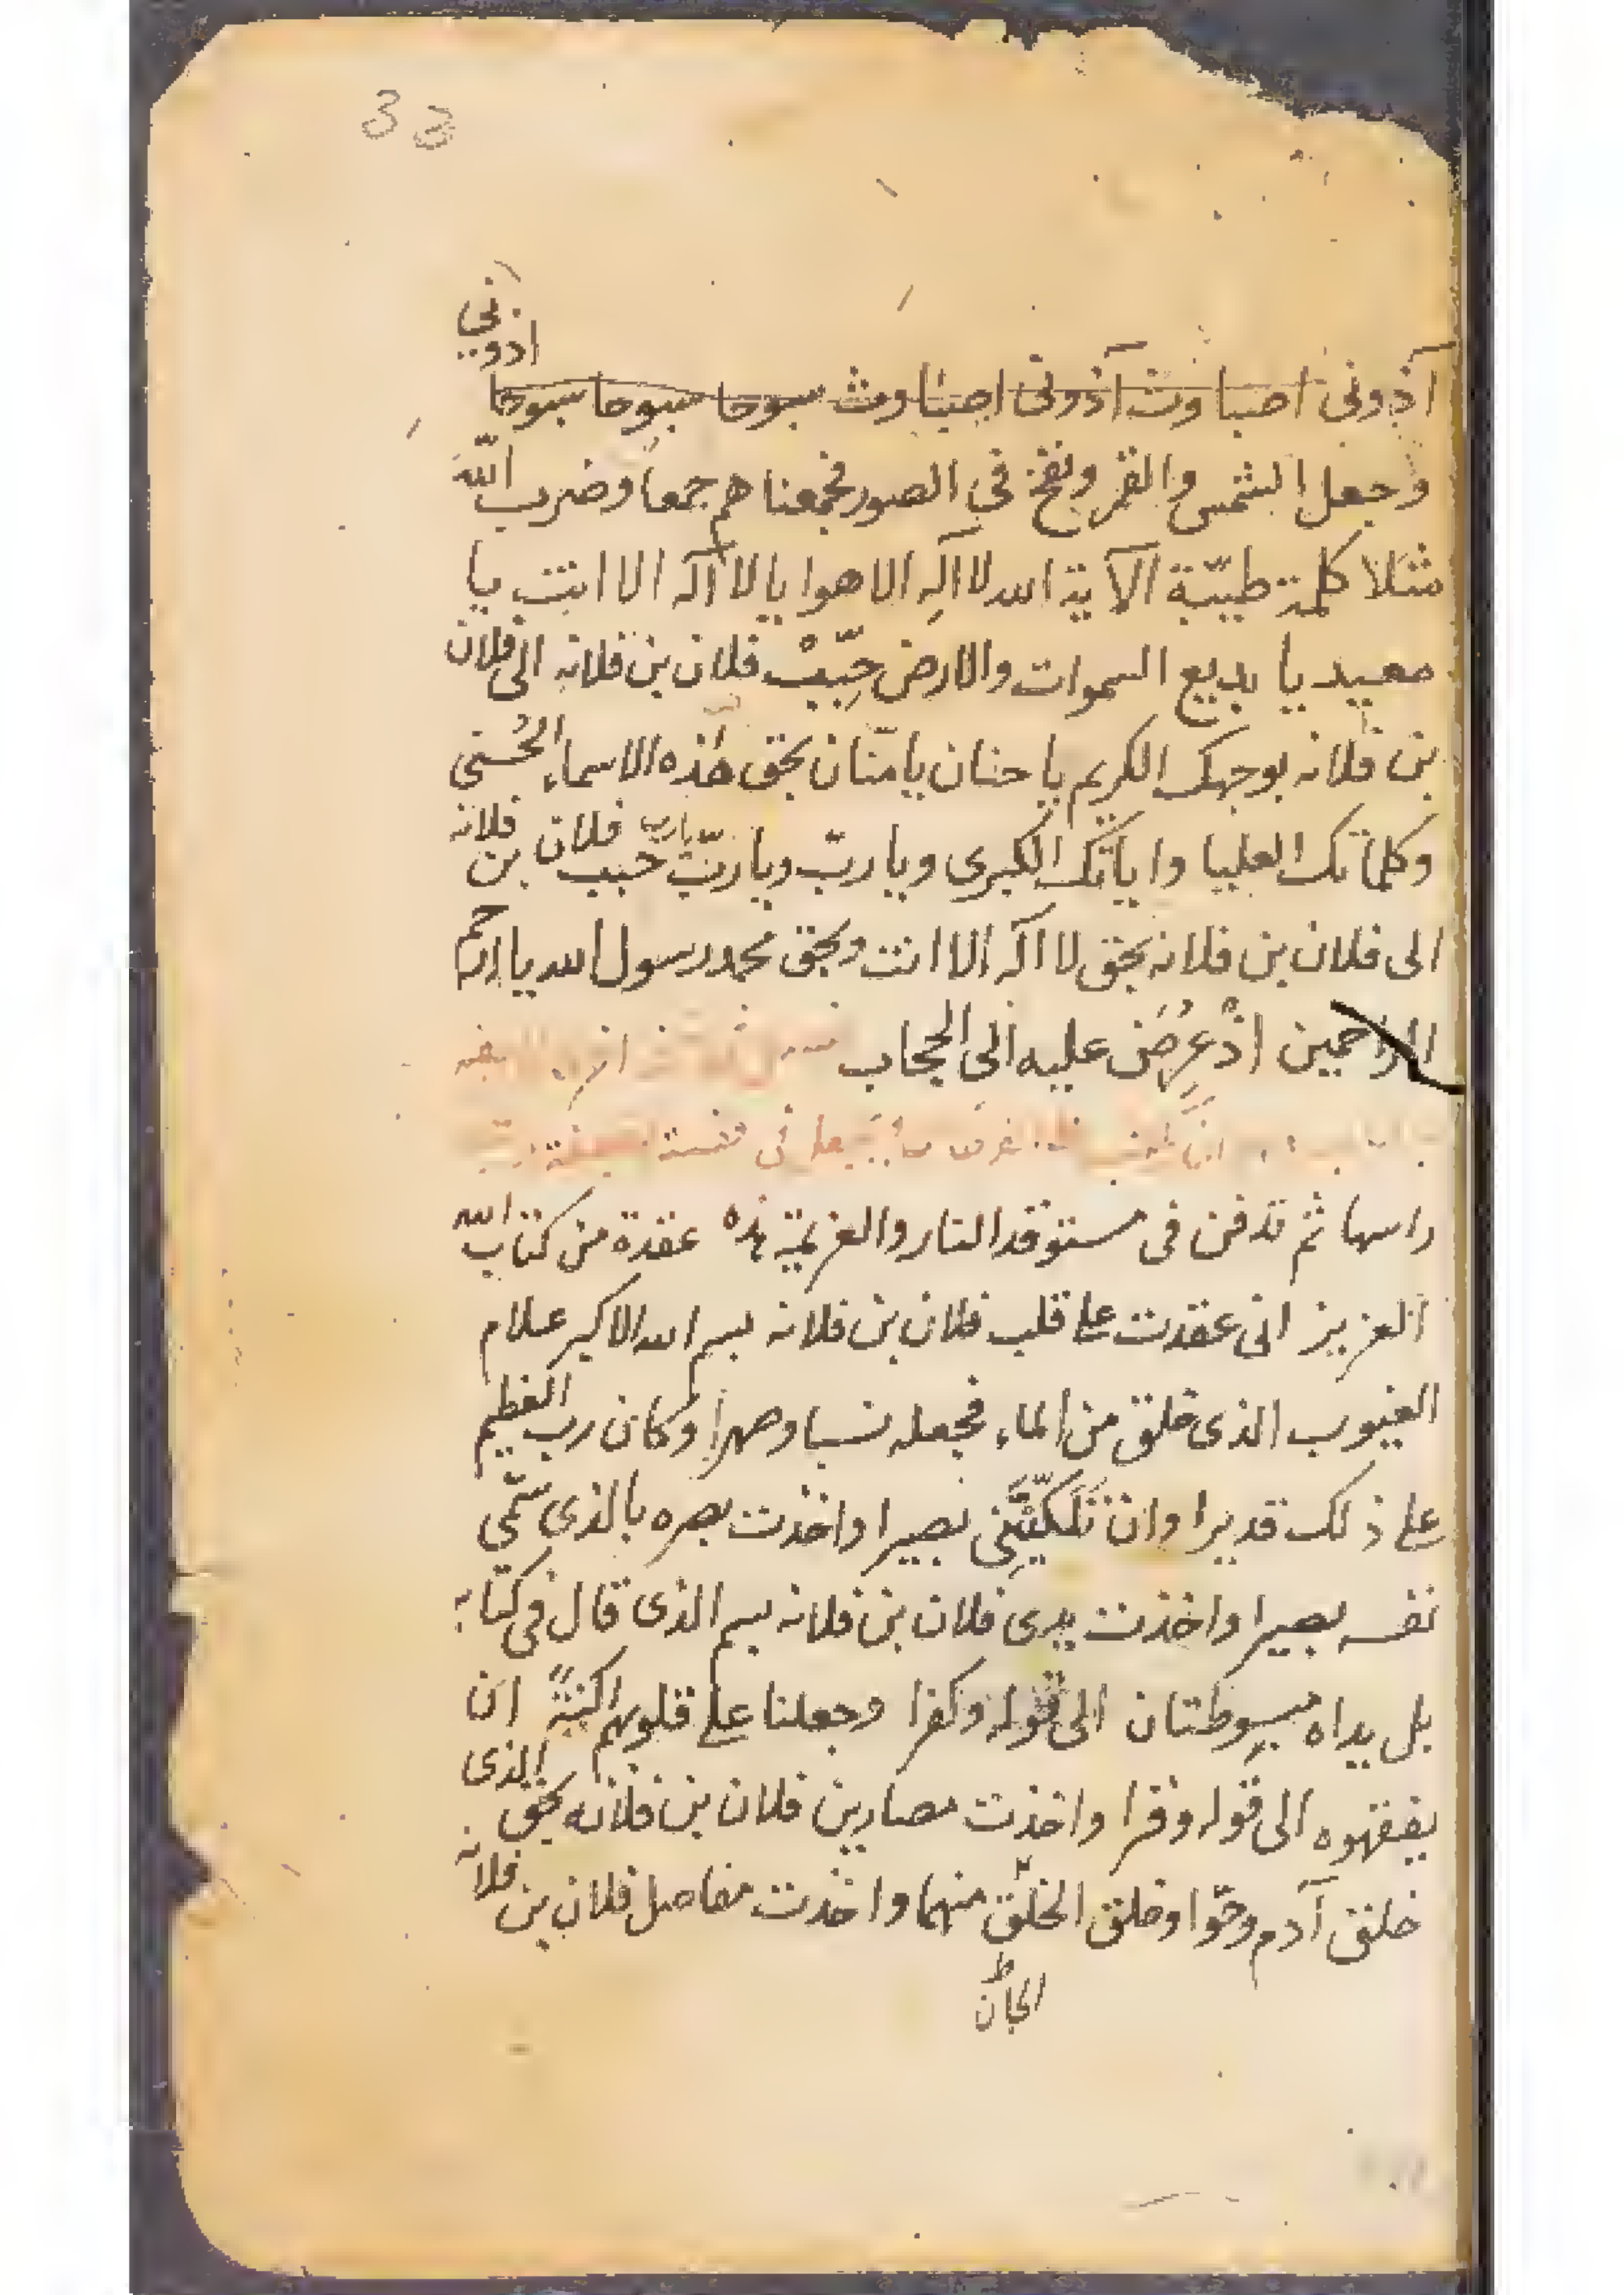 33
اذوني
آذونى اصباوث آذونى اصباوث سبوحا سبوحا سبوحا
وجعل الشمس والقمر ونفخ في الصور فجمعناهم جمعا وضرب الله
مثلا كلمة طيّبة الآية الله لا اله الا هو ايا لا اله الا انت يا
معيد يا بديع السموات والارض حبّب فلان بن فلانه الى فلان
بن فلانه بوجهك الكريم يا حنان يا منّان بحق هذه الاسماء الحُسنى
وكلماتك العليا واياتك الكبرى ويا ربّ ويا ربّ يا رب حبب فلان بن فلانه
الى فلان بن فلانه بحق لا اله الا انت وبحق محمد رسول الله يا ارحم
الراحمين اذ عرض عليه الى الحجاب
فى
راسها ثم تدفن فى مستوقد النار والعزيمة هذه عقدة من كتاب الله
العزيز انى عقدت على قلب فلان بن فلانه بسم الله الاكبر علام
الغيوب الذى خلق من الماء فجعله نسبا وصهرا وكان رب العظيم
على ذلك قديرا وان بصيرا واخذت بصره بالذى سمّى
نفسه بصيرا واخذت يدى فلان بن فلانه بسم الذى قال فى كتابه
بل يداه مبسوطتان الى قوله وكفرا وجعلنا على قلوبهم اكنةً ان
يفقهوه الى قوله وقرا واخذت مصارين فلان بن فلانه بحق الذى
خلق آدم وحوّا وخلق الخلق منهما واخذت مفاصل فلان بن فلانه
الجانّ